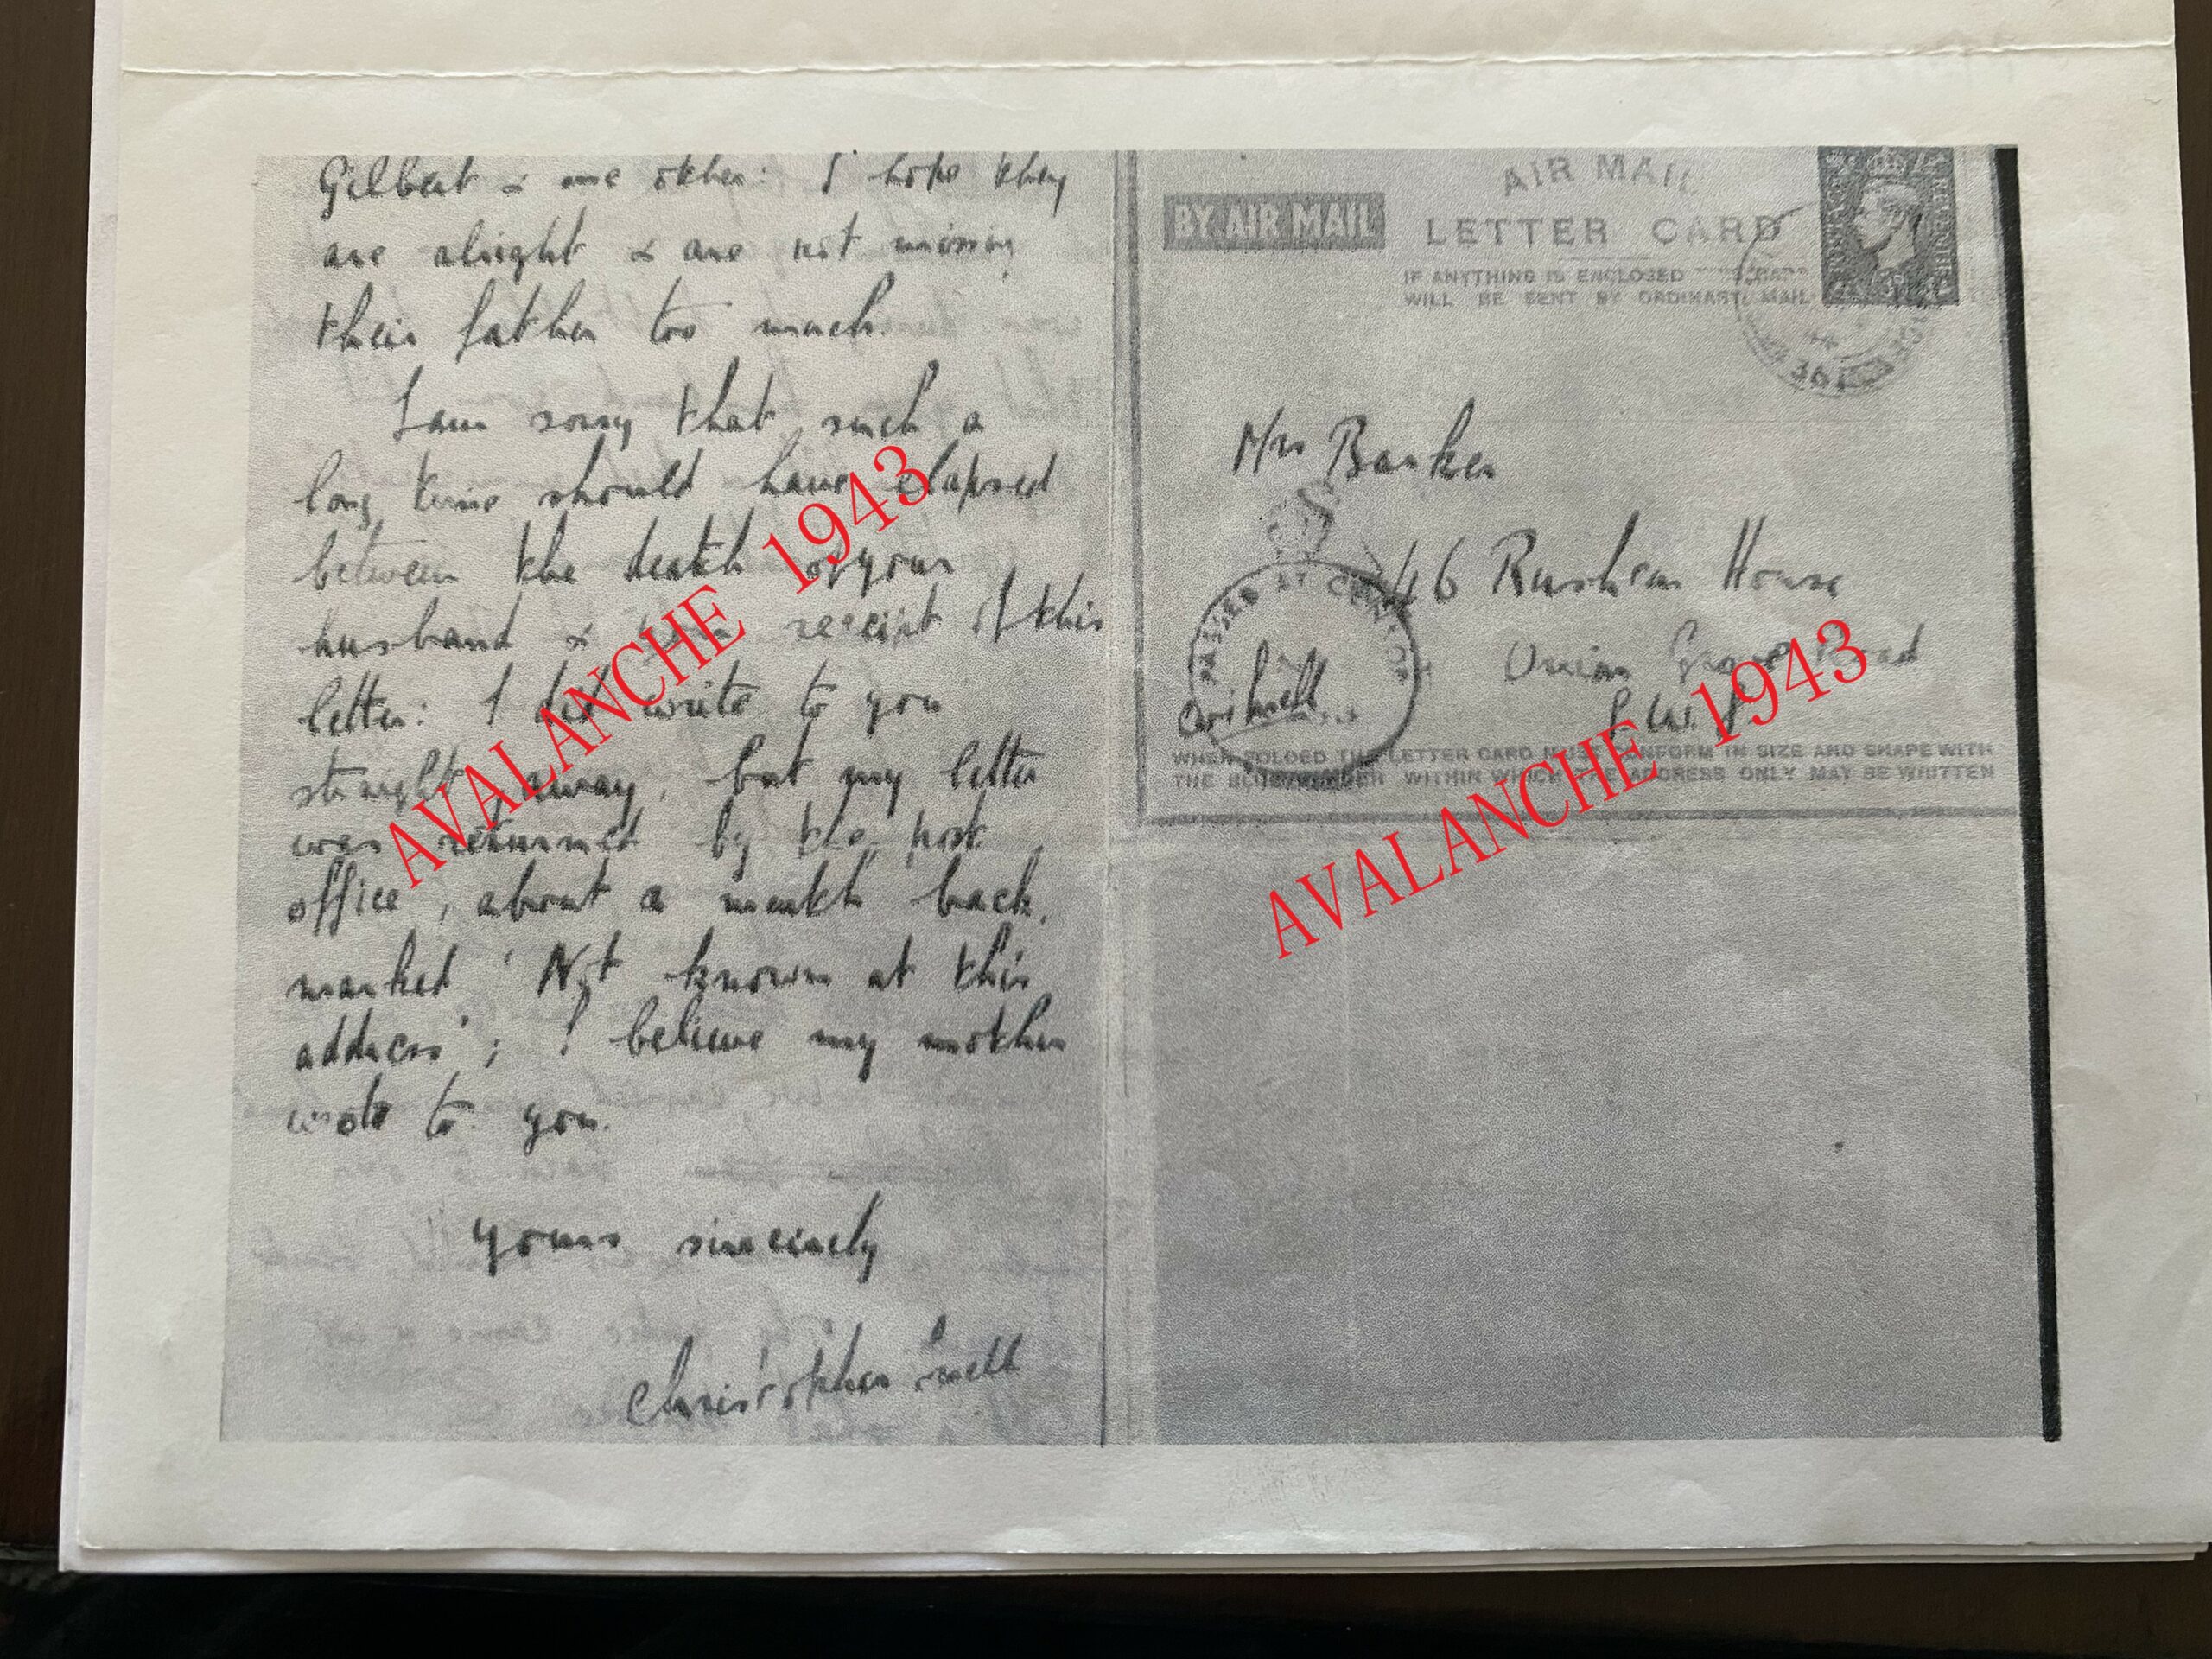 Gilbert & one other: I hope they
are alright & are not missing
their father too much.
I am sorry that such a
long time should have elapsed
between the death of your
husband & receipt of this
letter: I did write to you
straight away, but my letter
was returned by the post
office, about a month back,
marked 'Not known at this
address'; I believe my mother
wrote to you.
Yours sincerely
Christopher
AVALANCHE 1943
BY AIR MAIL
AIR MAIL
LETTER CARD
IF ANYTHING IS ENCLOSED CARD
WILL BE SENT BY ORDINARY MAIL
Mrs Barker
46 Rusham House
Road
S.W.8
PASSED AT CENSOR
WHEN FOLDED THE LETTER CARD MUST CONFORM IN SIZE AND SHAPE WITH
THE BLUE BORDER WITHIN WHICH THE ADDRESS ONLY MAY BE WRITTEN
AVALANCHE 1943